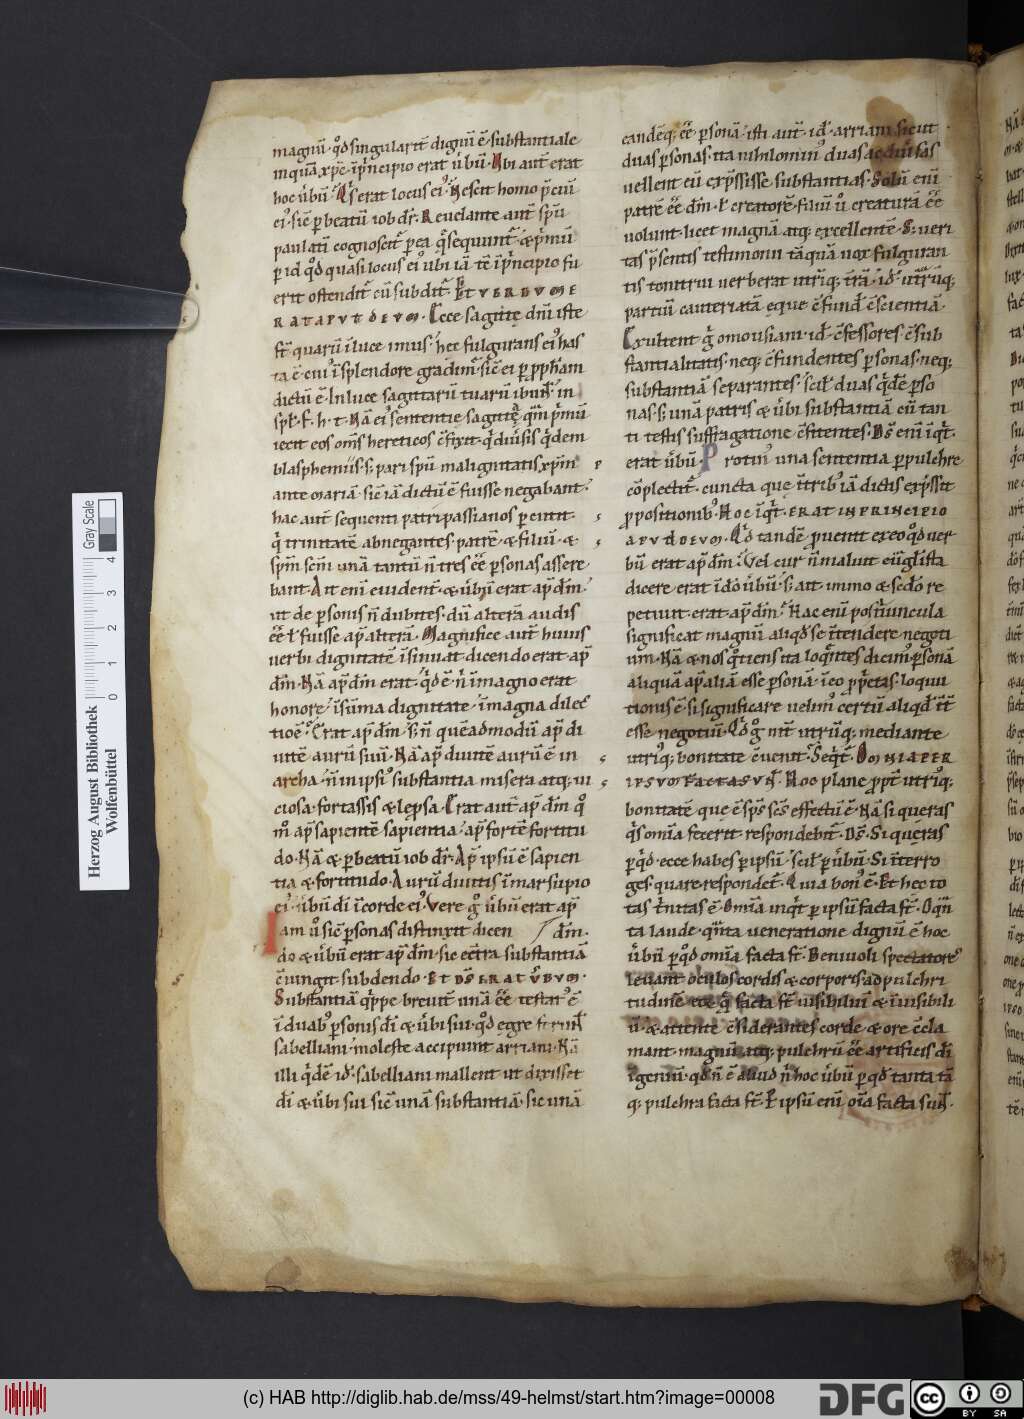 magnū. qđ singularit̄ dignū ē. substantiale
inquā xp̄c īpͥncipio erat ūbū. Ubi aut̄ erat
hoc ūbū. Qͥs erat locus eiꝰ. Nescit homo p̄ciū
eiꝰ. sic̄ ꝑ beatū iob dr̄. Reuelante aut̄ sp̄u
paulatī cognoscit᷑ ꝑ ea q̄ sequunt᷑. & pͥmū
ꝑ id qđ quasi locus eiꝰ ubi iā tc̄ īpͥncipio fu
erit ostendit᷑ cū subdit᷑. ET VERBVM E
RAT APVT DEVM. Ecce sagittę dn̄i iste
st̄ quarū ī luce imus. hec fulgurans eiꝰ has
ta ē cuiꝰ ī splendore gradim̄. sic̄ ei ꝑ pph̄am
dictū ē. In luce sagittarū tuarū ibun̄t in
spl̄. f. h. t. Nā eiꝰ sententię sagittę qm̄ pͥmū
iecit eos om̄s hereticos c̄fixit. qͥ diūsis qͥdem
blasphemiis. s; pari sp̄u malignitatis xp̄m
ante mariā sic̄ iā dictū ē fuisse negabant.
hac aut̄ sequenti patripassianos ꝑcutit.
qͥ trinitatē abnegantes. patrē & filiū. &
sp̄m sc̄m unā tantū n̄ tres ēē ꝑsonas assere
bant. Ait enī euident̄. & ūbū erat ap̄ dm̄.
ut de ꝑsonis n̄ dubites. dū alterā audis
ēē ł fuisse ap̄ alterā. Magnifice aut̄ huius
uerbi dignitatē īsinuat dicendo erat ap̄
dm̄. Nā ap̄ dm̄ erat. qđ ē n̄ ī magno erat
honore. ī sūma dignitate. ī magna dilec
tioē. Erat ap̄ dm̄. s; n̄ quēadmodū ap̄ di
uitē aurū suū. Nā ap̄ diuitē aurū ē in
archa. n̄ in ipsiꝰ substantia misera atq; ui
ciosa. fortassis & lep̄sa. Erat aut̄ ap̄ dm̄ qͦ
mͦ ap̄ sapientē sapientia. ap̄ fortē fortitu
do. Nā & ꝑ beatū iob dr̄. Ap̄ ipsū ē sapien
tia & fortitudo. Aurū diuitis ī marsupio
eiꝰ. ūbū dī ī corde eiꝰ. Vere gͦ ūbū erat ap̄
Iam uͦ sic̄ ꝑsonas distinxit dicen dm̄.
do & ūbū erat ap̄ dm̄. sic ec̄tra substantiā
c̄iungit subdendo. ET DS̄ ERAT ŪBVM.
Substantiā qͥppe breuit̄ unā ēē testat᷑ ē
ī duabꝰ ꝑsonis dī & ūbi sui. qđ egre ferun̄t
sabelliani. moleste accipiunt arriani. Nā
illi qͥdē .id. sabelliani mallent ut dixisset
dī & ūbi sui sic̄ unā substantiā. sic unā
candēq; ēē ꝑsonā. isti aut̄ .id. arriani sicut
duas ꝑsonas. ita nihilominꝰ duas ac diūsas
uellent eū exp̄ssisse substantias. Solū enī
patrē ēē dm̄. ł creatorē. filiū uͦ creaturā ēē
uolunt. licet magnā atq; excellentē. S; ueri
tas p̄sentis testimonii tāquā uox fulguran
tis tonitrui uerberat utrūq; t̄rā. .id. utrūq;
partiū cauteriatā eque c̄fund c̄scientiā.
Exultent gͦ omousiani .id. c̄fessores c̄sub
stantialitatis. neq; c̄fundentes ꝑsonas. neq;
substantiā separantes. scil̄ duas qͥdē ꝑso
nas. s; unā patris & ūbi substantiā eū tan
ti testis suffragatione c̄fitentes. Ds̄ enī īqͥt.
erat ūbū. Protinꝰ una sententia ꝑpulchre
cōplectit᷑ cuncta que t̄ribꝰ iā dictis exp̄ssit
ꝓpositionibꝰ. Hoc īqͥt. ERAT IN PRINCIPIO
APVD DEVM. Qđ tandē ꝓuenit ex eo qđ uer
bū erat ap̄ dm̄. Vel cur n̄ maluit euḡlista
dicere erat ī dō ūbū. s; ait immo & sc̄do re
petiuit. erat ap̄ dm̄. Hac enī positiuncula
significat magnū aliqđ se ītendere negoti
um. Nā & nos qͦtiens ita loqͣntes dicimꝰ ꝑsonā
aliquā ap̄ aliā esse ꝑsonā. ī eo ꝓpͥetas loquu
tionis ē. si significare uelim certū aliqđ īt̄
esse negotiū. Qđ gͦ int̄ utrūq; mediante
utriꝰq; bonitate c̄uenit. Seqͥt᷑. OMNIA PER
IPSVM FACTA SVNT. Hoc plane ꝓpt̄ utriꝰq;
bonitatē que ē sp̄s sc̄s effectū ē. Nā si queras
qͥs om̄ia fecerit. respondebit᷑. Ds̄. Si quęras
ꝑ qđ. ecce habes ꝑ ipsū. scil̄ ꝑ ūbū. Si īterro
ges quare. respondet᷑. Quia bonꝰ ē. Et hec to
tas t̄nitas ē. Om̄ia inqͥt ꝑ ipsū facta st̄. O qn̄
ta laude. qn̄ta ueneratione dignū ē hoc
ūbū ꝑ qđ om̄ia facta st̄. Beniuoli spectatores
leuant oculos cordis & corporis ad pulchri
tudinē eoꝝ q̄ facta st̄ uisibiliū & īuisibili
ū. & attente c̄siderantes corde & ore c̄cla
mant. magnū atq; pulchrū ēē artificis dī
īgeniū. qđ n̄ ē aliud n̄ hoc ūbū ꝑ qđ tanta tā
q; pulchra facta st̄. Ꝑ ipsū enī om̄ia facta sun̄t.
Herzog August Bibliothek
Wolfenbüttel
0 1 2 3 4
Gray Scale
(c) HAB http://diglib.hab.de/mss/49-helmst/start.htm?image=00008
DFG
cc BY SA